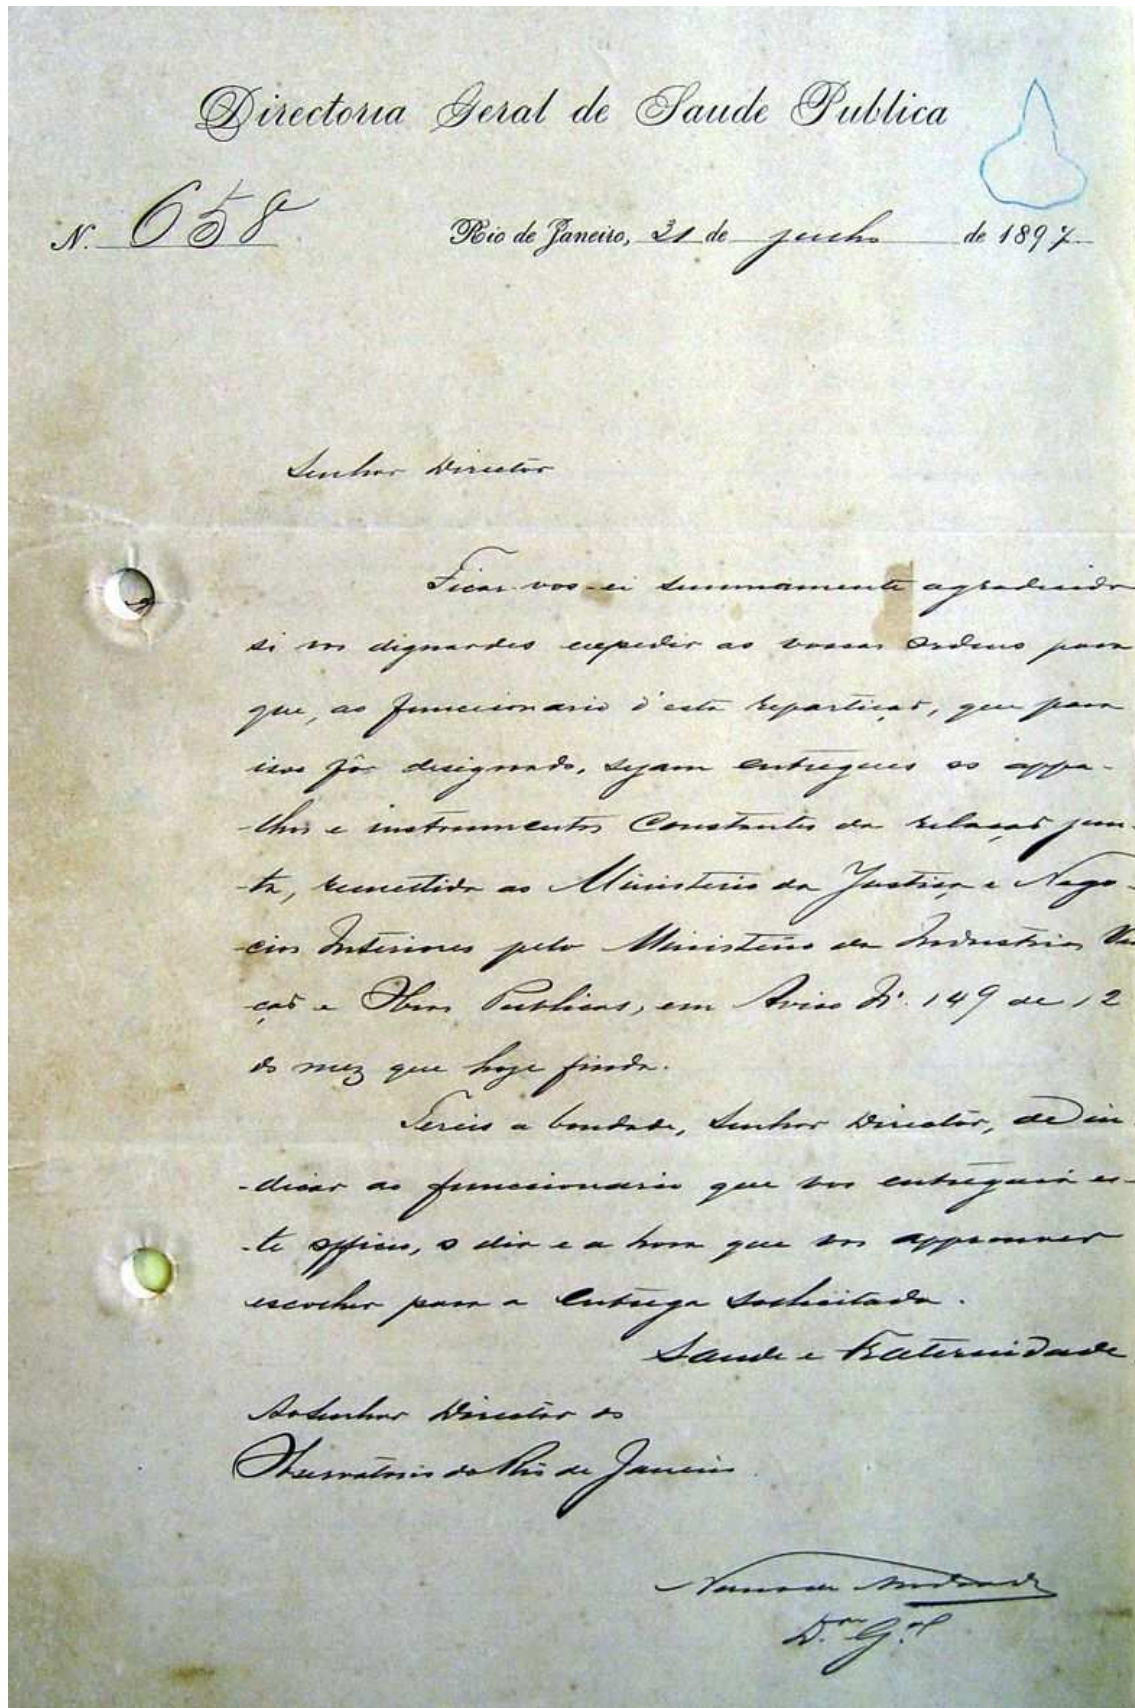 Directoria Geral de Saude Publica
N. 658
Rio de Janeiro, 31 de julho de 1897
Senhor Director
Ficar-vos-ei summamente agradecido
si vos dignardes expedir as vossas ordens para
que, ao funccionario d'esta repartição, que para
isso fôr designado, sejam entregues os appa-
-lhos e instrumentos constantes da relação jun-
-ta, remettida ao Ministerio da Justiça e Nego-
-cios Interiores pelo Ministerio da Industria, Via
ção e Obras Publicas, em Aviso Nº 149 de 12
do mez que hoje finda.
Tereis a bondade, Senhor Director, de in
-dicar ao funccionario que vos entregará es-
-te officio, o dia e a hora que vos approuver
escolher para a entrega solicitada.
Saude e Fraternidade
Ao Senhor Director do
Observatorio do Rio de Janeiro.
Nuno de Andrade
D.or G.al